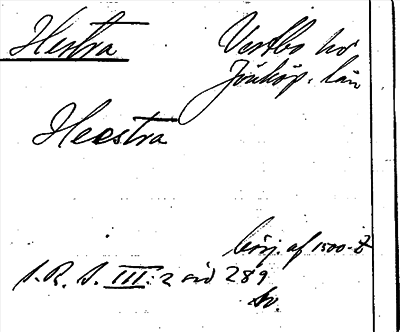 Hestra Vestbo hd
Jönköp. län
Heestra
börj. af 1500-t
S. R. S. III: 2 sid 289